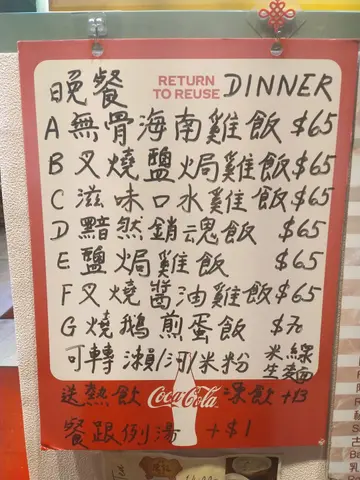 晚餐 RETURN TO REUSE DINNER
A 無骨海南雞飯 $65
B 叉燒鹽焗雞飯 $65
C 滋味口水雞飯 $65
D 黯然銷魂飯 $65
E 鹽焗雞飯 $65
F 叉燒醬油雞飯 $65
G 燒鵝煎蛋飯 $70
可轉瀨/河/米粉 米線 生麵
送熱飲 Coca-Cola 凍飲 +$3
餐跟例湯 +$1